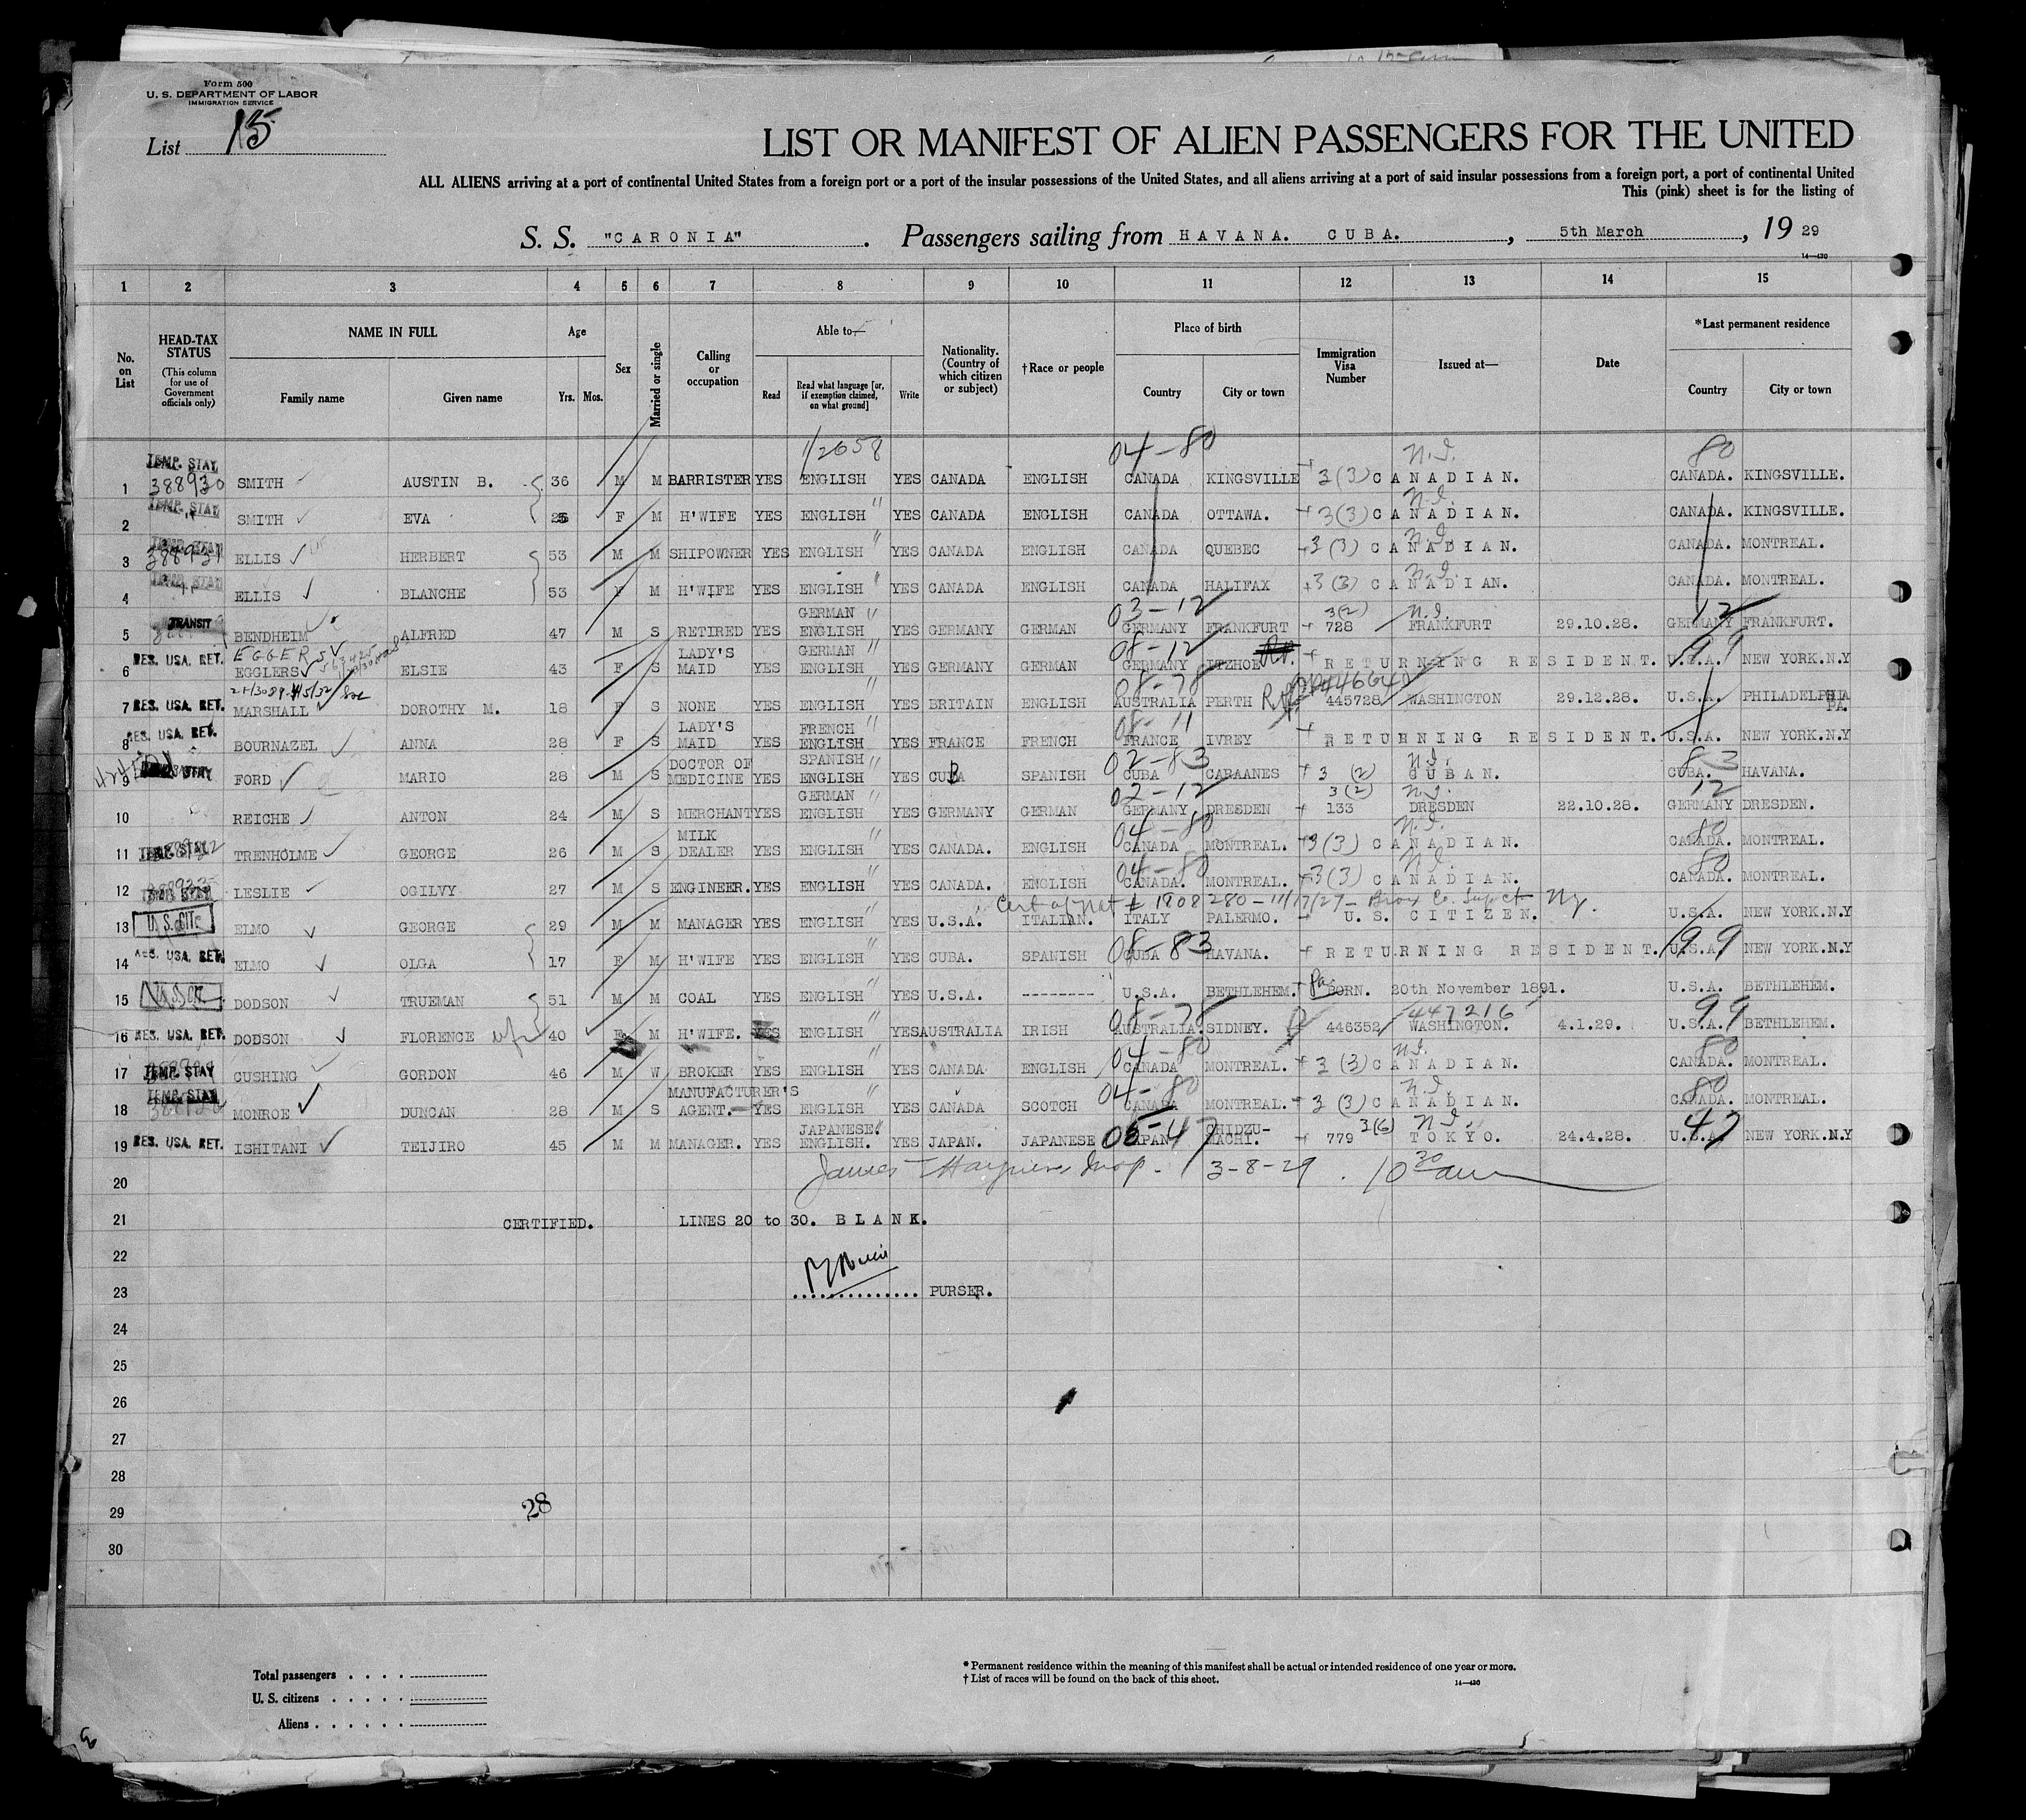 Form 500
U. S. DEPARTMENT OF LABOR
IMMIGRATION SERVICE
List 15
LIST OR MANIFEST OF ALIEN PASSENGERS FOR THE UNITED
ALL ALIENS arriving at a port of continental United States from a foreign port or a port of the insular possessions of the United States, and all aliens arriving at a port of said insular possessions from a foreign port, a port of continental United
This (pink) sheet is for the listing of
S. S. "CARONIA". Passengers sailing from HAVANA. CUBA., 5th March, 19 29
14—430
1 2 3 4 5 6 7 8 9 10 11 12 13 14 15
No. on List
HEAD-TAX STATUS (This column for use of Government officials only)
NAME IN FULL Family name Given name
Age Yrs. Mos.
Sex
Married or single
Calling or occupation
Able to— Read Read what language [or, if exemption claimed, on what ground] Write
Nationality. (Country of which citizen or subject)
†Race or people
Place of birth Country City or town
Immigration Visa Number
Issued at—
Date
*Last permanent residence Country City or town
1/2658 04-80 N.I. 80
1 TEMP. STAY 388930 SMITH AUSTIN B. 36 M M BARRISTER YES ENGLISH YES CANADA ENGLISH CANADA KINGSVILLE 3(3) CANADIAN. CANADA. KINGSVILLE.
N.I.
2 TEMP. STAY SMITH EVA F M H'WIFE YES ENGLISH " YES CANADA ENGLISH CANADA OTTAWA. 3(3) CANADIAN. CANADA. KINGSVILLE.
N.I.
3 TEMP. STAY 388931 ELLIS HERBERT 53 M M SHIPOWNER YES ENGLISH " YES CANADA ENGLISH CANADA QUEBEC 3(3) CANADIAN. CANADA. MONTREAL.
N.I.
4 TEMP. STAY ELLIS BLANCHE 53 F M H'WIFE YES ENGLISH " YES CANADA ENGLISH CANADA HALIFAX 3(3) CANADIAN. CANADA. MONTREAL.
GERMAN " 03-12 3(2) N.I. 12
5 TRANSIT BENDHEIM ALFRED 47 M S RETIRED YES ENGLISH YES GERMANY GERMAN GERMANY FRANKFURT 728 FRANKFURT 29.10.28. GERMANY FRANKFURT.
EGGERS LADY'S GERMAN " 08-12 99
6 RES. USA. RET. EGGLERS ELSIE 43 F S MAID YES ENGLISH YES GERMANY GERMAN GERMANY ITZHOE RETURNING RESIDENT. U.S.A. NEW YORK.N.Y
" 08-78
7 RES. USA. RET. MARSHALL DOROTHY M. 18 F S NONE YES ENGLISH YES BRITAIN ENGLISH AUSTRALIA PERTH 445728 WASHINGTON 29.12.28. U.S.A. PHILADELPHIA PA.
LADY'S FRENCH " 08-11
8 RES. USA. RET. BOURNAZEL ANNA 28 F S MAID YES ENGLISH YES FRANCE FRENCH FRANCE IVREY RETURNING RESIDENT. U.S.A. NEW YORK.N.Y
DOCTOR OF SPANISH " 02-83 N.I. 83
9 FORD MARIO 28 M S MEDICINE YES ENGLISH YES CUBA SPANISH CUBA CARAANES 3 (2) CUBAN. CUBA. HAVANA.
GERMAN " 02-12 3(2) N.I. 12
10 REICHE ANTON 24 M S MERCHANT YES ENGLISH YES GERMANY GERMAN GERMANY DRESDEN 133 DRESDEN 22.10.28. GERMANY DRESDEN.
MILK " 04-80 N.I. 80
11 TEMP. STAY TRENHOLME GEORGE 26 M S DEALER YES ENGLISH YES CANADA. ENGLISH CANADA MONTREAL. 3(3) CANADIAN. CANADA. MONTREAL.
" 04-80 N.I. 80
12 TEMP. STAY LESLIE OGILVY 27 M S ENGINEER. YES ENGLISH YES CANADA. ENGLISH CANADA. MONTREAL. 3(3) CANADIAN. CANADA. MONTREAL.
Cert of Nat # 1808280 - 11/17/27 - Bronx Co. Sup Ct Ny.
13 U.S. CIT. ELMO GEORGE 29 M M MANAGER YES ENGLISH " YES U.S.A. ITALIAN. ITALY PALERMO. U.S. CITIZEN. U.S.A. NEW YORK.N.Y
14 RES. USA. RET. ELMO OLGA 17 F M H'WIFE YES ENGLISH " YES CUBA. SPANISH 08-83 CUBA HAVANA. RETURNING RESIDENT. 99 U.S.A. NEW YORK.N.Y
15 U.S. CIT. DODSON TRUEMAN 51 M M COAL YES ENGLISH " YES U.S.A. -------- U.S.A. BETHLEHEM. Pa BORN. 20th November 1891. U.S.A. BETHLEHEM.
08-78 447216 99
16 RES. USA. RET. DODSON FLORENCE wife 40 F M H'WIFE. YES ENGLISH " YES AUSTRALIA IRISH AUSTRALIA. SIDNEY. 446352 WASHINGTON. 4.1.29. U.S.A. BETHLEHEM.
" 04-80 N.I. 80
17 TEMP. STAY CUSHING GORDON 46 M W BROKER YES ENGLISH YES CANADA ENGLISH CANADA MONTREAL. 3 (3) CANADIAN. CANADA. MONTREAL.
MANUFACTURER'S " 04-80 N.I. 80
18 TEMP. STAY MONROE DUNCAN 28 M S AGENT. YES ENGLISH YES CANADA SCOTCH CANADA MONTREAL. 3 (3) CANADIAN. CANADA. MONTREAL.
JAPANESE. " 05-47 CHIDZU- 3(6) N.I. 47
19 RES. USA. RET. ISHITANI TEIJIRO 45 M M MANAGER. YES ENGLISH. YES JAPAN. JAPANESE JAPAN MACHI. 779 TOKYO. 24.4.28. U.S.A. NEW YORK.N.Y
20 James Insp. 3-8-29. 10 30 am
21 CERTIFIED. LINES 20 to 30. BLANK.
22
23 PURSER.
24
25
26
27
28
29 28
30
Total passengers
U. S. citizens
Aliens
* Permanent residence within the meaning of this manifest shall be actual or intended residence of one year or more.
† List of races will be found on the back of this sheet.
14—430